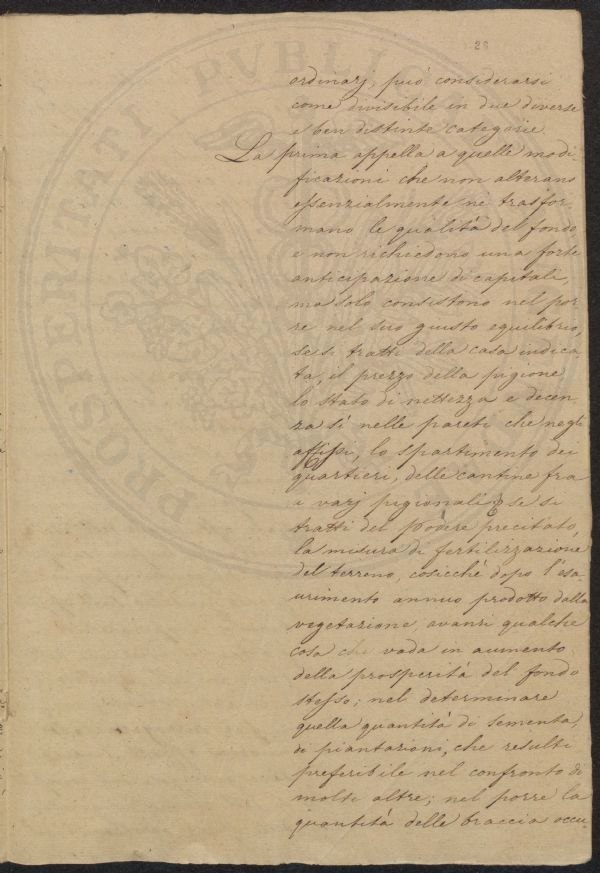 28
ordinarj, può considerarsi
come divisibile in due diverse
e ben distinte categorie.
La prima appella a quelle modi-
ficazioni che non alterano
essenzialmente nè trasfor-
mano le qualità del fondo
e non richiedono una forte
anticipazione di capitali,
ma solo consistono nel por-
re nel suo giusto equilibrio,
se si tratti della casa indica-
ta, il prezzo della pigione
lo stato di nettezza e decen-
za sì nelle pareti che negli
affissi, lo spartimento dei
quartieri, delle cantine fra
i varj pigionali; e se si
tratti del Podere precitato,
la misura di fertilizzazione
del terreno, cosicchè dopo l'esa-
urimento annuo prodotto dalla
vegetazione avanzi qualche
cosa che vada in aumento
della prosperità del fondo
stesso; nel determinare
quella quantità di sementa,
di piantazioni, che resulti
preferibile nel confronto di
molti altre; nel porre la
quantità delle braccia occu-
PROSPERITATI PVBLIC